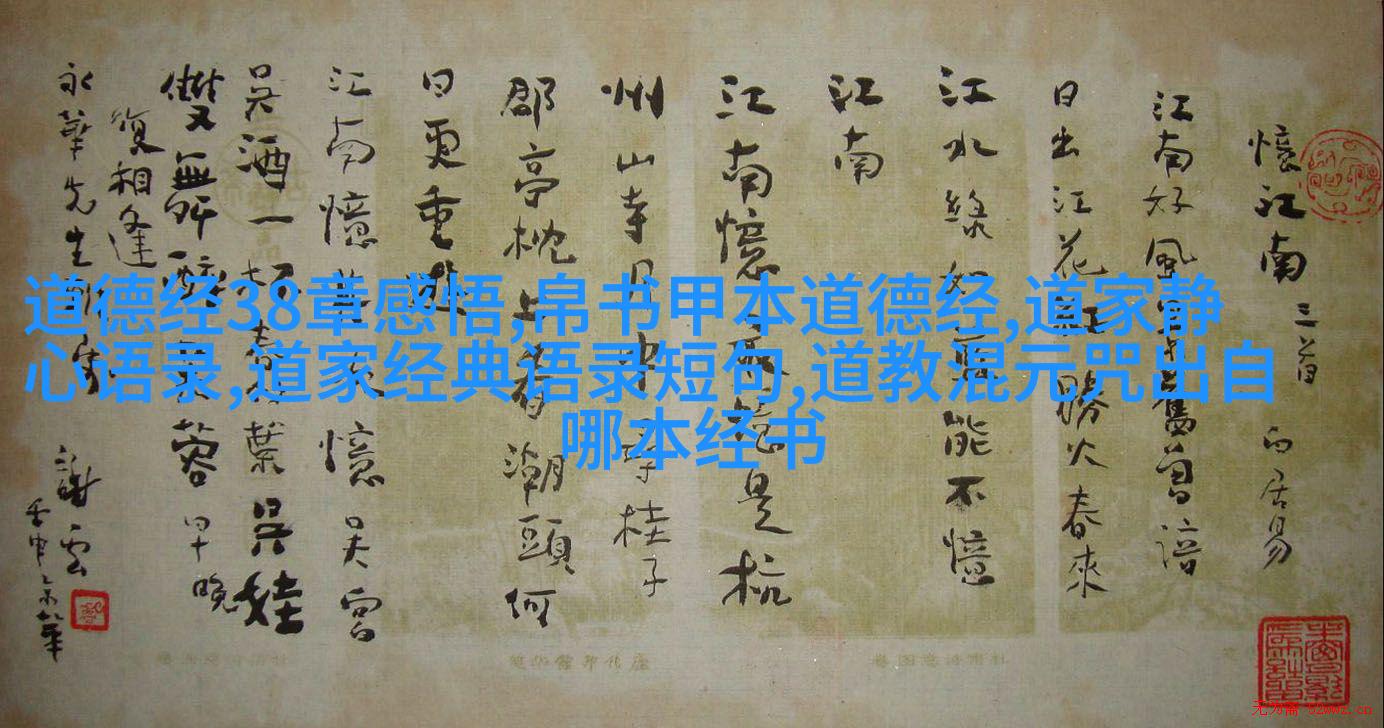 道德经38章感悟,帛书甲本道德经,道家静
心语录,道家经典语录短句,道教混元咒出自
哪本经书
憶江南 三首 白居易
江南好風景舊曾諳
日出江花紅勝火春來
江水綠如藍能不憶
江南
江南憶最憶是杭
州山寺月中尋桂子
郡亭枕上看潮頭何
日更重遊
江南憶其次憶吳宮
吳酒一杯春竹葉吳娃
雙舞醉芙蓉早晚
復相逢
永華先生
謝雲
无为斋 52wwz.cn